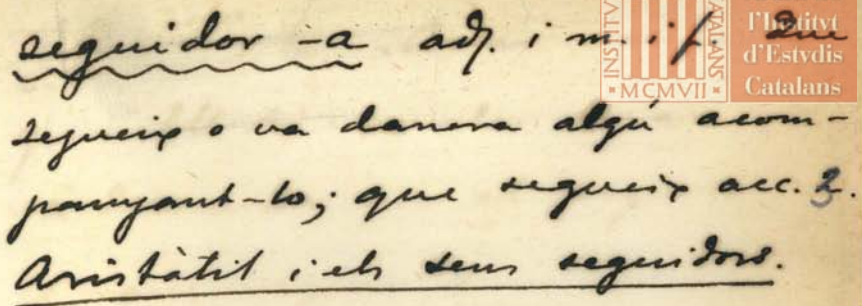 seguidor -a adj. i m. i f. Que
segueix o va darrera algú acom-
panyant-lo; que segueix acc. 2.
Aristòtil i els seus seguidors.
l'Institvt
d'Estvdis
Catalans
MCMVII